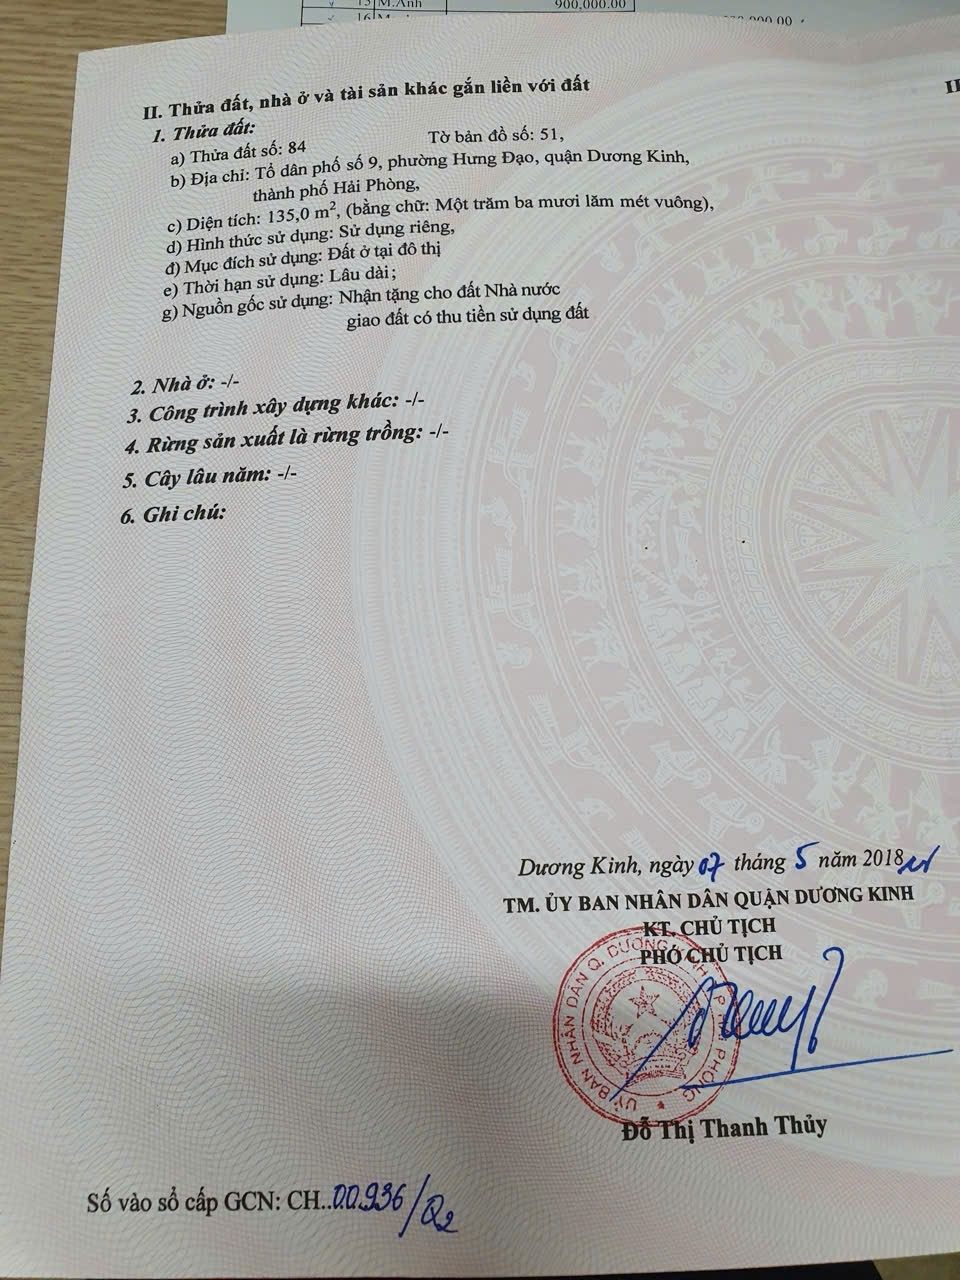 M.Anh
900,000.00
16
II. Thửa đất, nhà ở và tài sản khác gắn liền với đất
1. Thửa đất:
a) Thửa đất số: 84 Tờ bản đồ số: 51,
b) Địa chỉ: Tổ dân phố số 9, phường Hưng Đạo, quận Dương Kinh,
thành phố Hải Phòng,
c) Diện tích: 135,0 m², (bằng chữ: Một trăm ba mươi lăm mét vuông),
d) Hình thức sử dụng: Sử dụng riêng,
đ) Mục đích sử dụng: Đất ở tại đô thị
e) Thời hạn sử dụng: Lâu dài;
g) Nguồn gốc sử dụng: Nhận tặng cho đất Nhà nước
giao đất có thu tiền sử dụng đất
2. Nhà ở: -/-
3. Công trình xây dựng khác: -/-
4. Rừng sản xuất là rừng trồng: -/-
5. Cây lâu năm: -/-
6. Ghi chú:
Dương Kinh, ngày 07 tháng 5 năm 2018
TM. ỦY BAN NHÂN DÂN QUẬN DƯƠNG KINH
KT. CHỦ TỊCH
PHÓ CHỦ TỊCH
ỦY BAN NHÂN DÂN Q. DƯƠNG KINH P. PHÒNG
Đỗ Thị Thanh Thủy
Số vào sổ cấp GCN: CH..00936/Q2